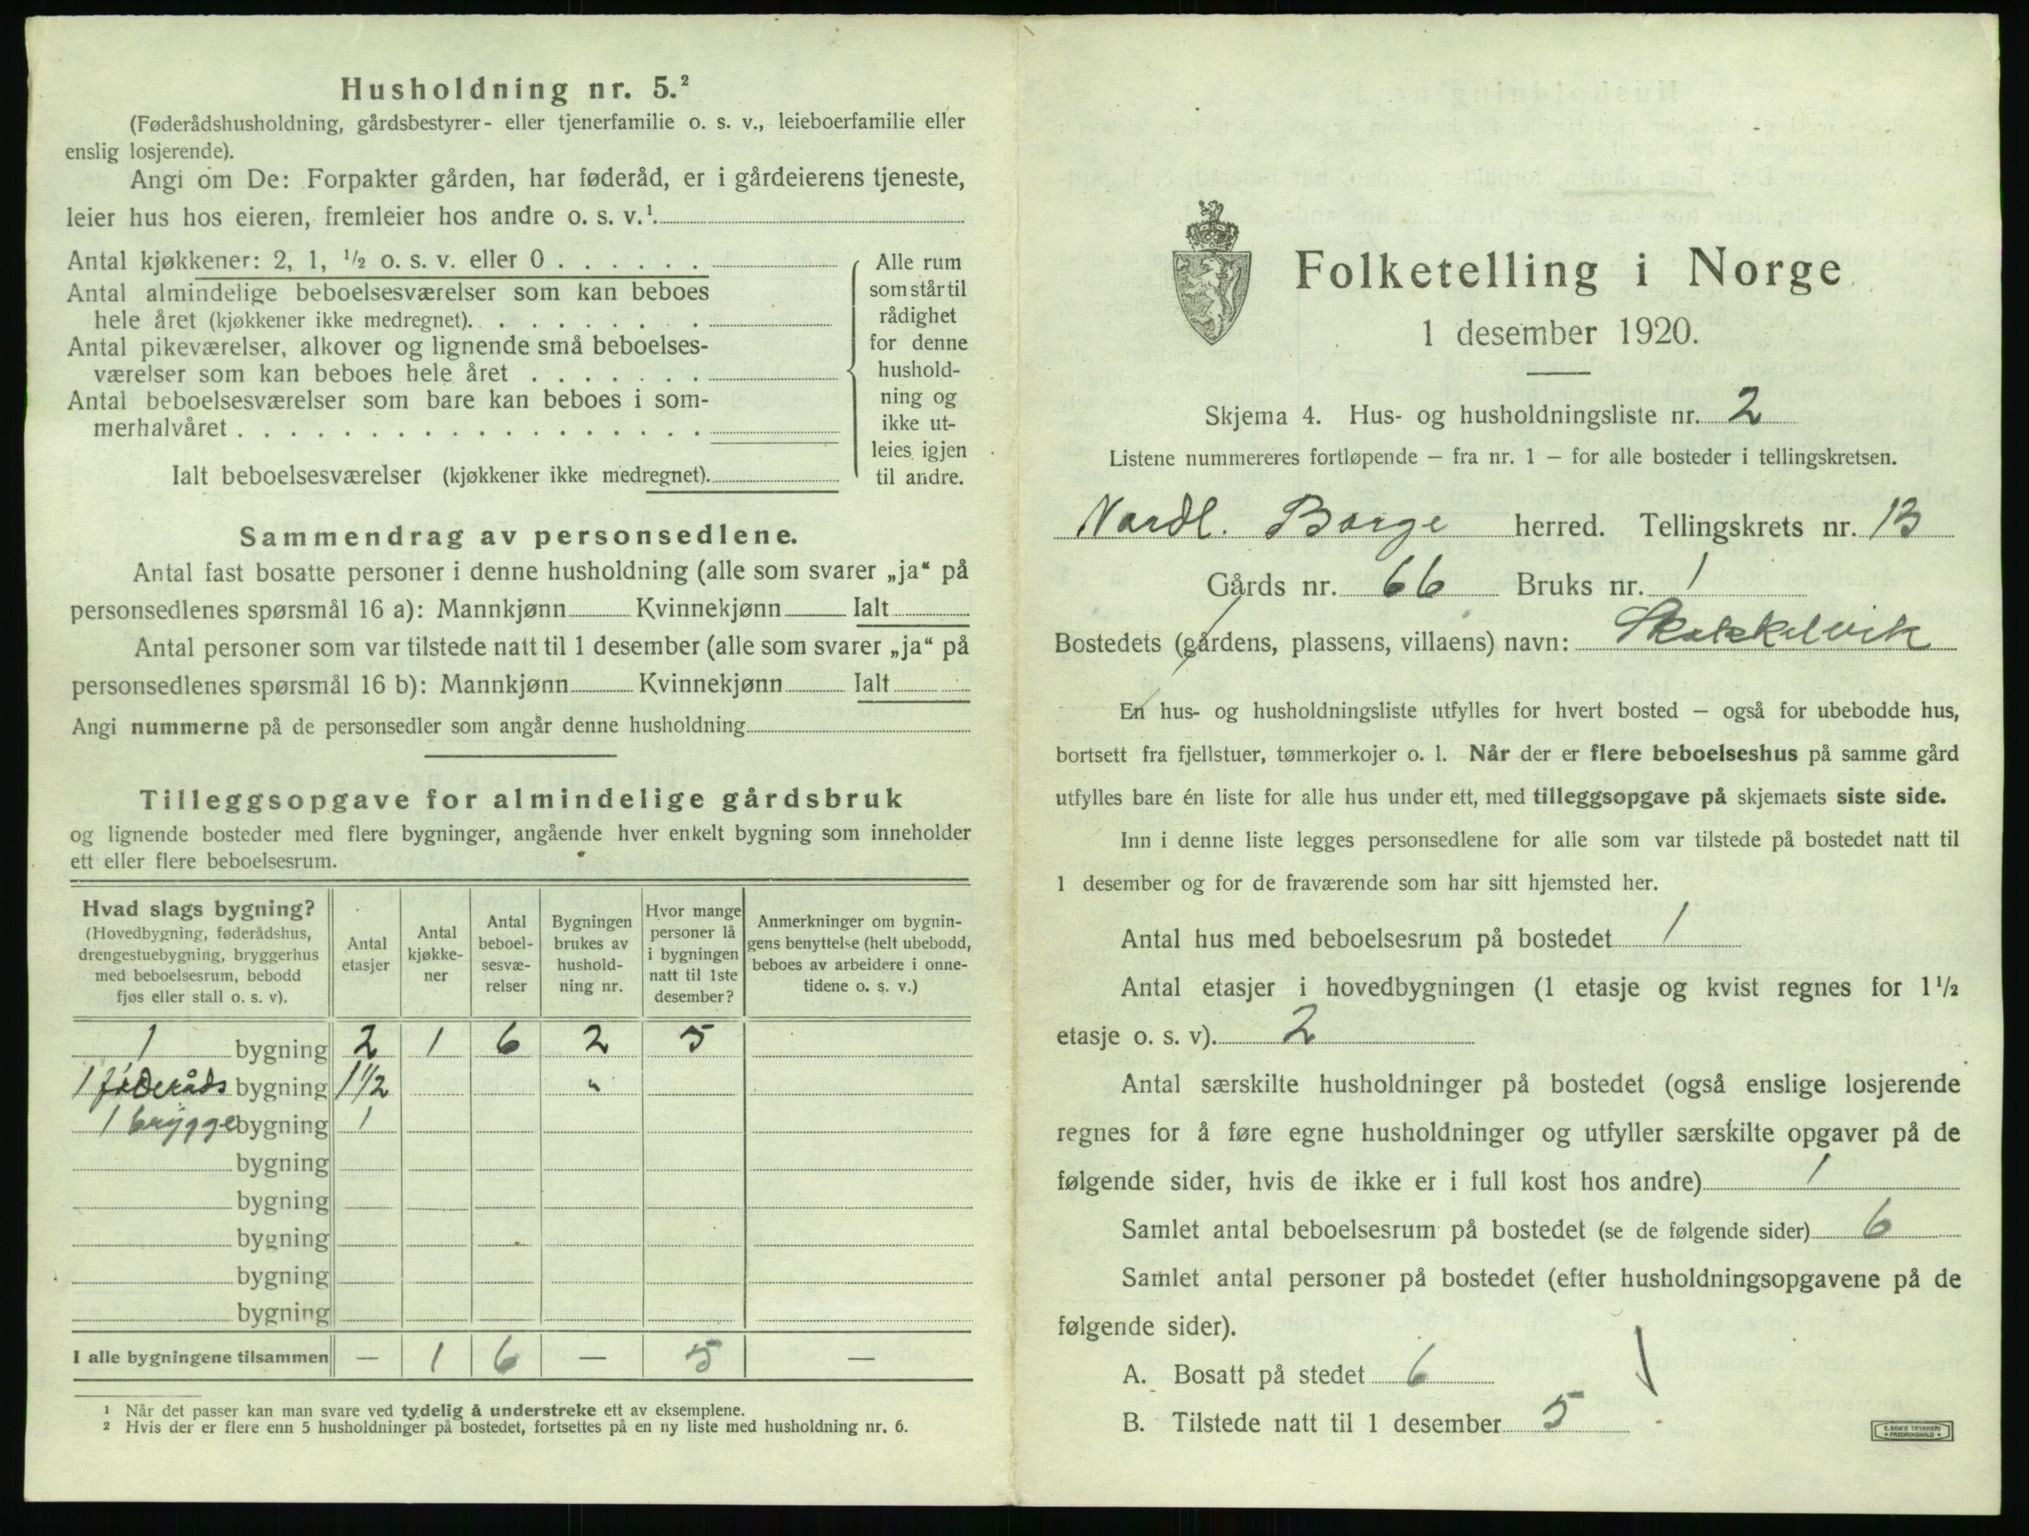 Husholdning nr. 5.²
(Føderådshusholdning, gårdsbestyrer- eller tjenerfamilie o. s. v., leieboerfamilie eller
enslig losjerende).
Angi om De: Forpakter gården, har føderåd, er i gårdeierens tjeneste,
leier hus hos eieren, fremleier hos andre o. s. v.¹
Antal kjøkkener: 2, 1, ½ o. s. v. eller 0 . . . . . .
Antal almindelige beboelsesværelser som kan beboes
hele året (kjøkkener ikke medregnet). . . . . . . . .
Antal pikeværelser, alkover og lignende små beboelses-
værelser som kan beboes hele året . . . . . . .
Antal beboelsesværelser som bare kan beboes i som-
merhalvåret . . . . . . . . . . . . . . . . . .
Ialt beboelsesværelser (kjøkkener ikke medregnet).
Alle rum
som står til
rådighet
for denne
hushold-
ning og
ikke ut-
leies igjen
til andre.
Sammendrag av personsedlene.
Antal fast bosatte personer i denne husholdning (alle som svarer „ja“ på
personsedlenes spørsmål 16 a): Mannkjønn Kvinnekjønn Ialt
Antal personer som var tilstede natt til 1 desember (alle som svarer „ja“ på
personsedlenes spørsmål 16 b): Mannkjønn Kvinnekjønn Ialt
Angi nummerne på de personsedler som angår denne husholdning
Tilleggsopgave for almindelige gårdsbruk
og lignende bosteder med flere bygninger, angående hver enkelt bygning som inneholder
ett eller flere beboelsesrum.
Hvad slags bygning?
(Hovedbygning, føderådshus,
drengestuebygning, bryggerhus
med beboelsesrum, bebodd
fjøs eller stall o. s. v).
Antal
etasjer
Antal
kjøkke-
ner
Antal
beboel-
sesvæ-
relser
Bygningen
brukes av
hushold-
ning nr.
Hvor mange
personer lå
i bygningen
natt til 1ste
desember?
Anmerkninger om bygnin-
gens benyttelse (helt ubebodd,
beboes av arbeidere i onne-
tidene o. s. v.)
1 bygning 2 1 6 2 5
1 føderåds bygning 1 1/2 "
1 brygge bygning 1
bygning
bygning
bygning
bygning
bygning
I alle bygningene tilsammen — 1 6 — 5 —
¹ Når det passer kan man svare ved tydelig å understreke ett av eksemplene.
² Hvis der er flere enn 5 husholdninger på bostedet, fortsettes på en ny liste med husholdning nr. 6.
Folketelling i Norge
1 desember 1920.
Skjema 4. Hus- og husholdningsliste nr. 2
Listene nummereres fortløpende — fra nr. 1 — for alle bosteder i tellingskretsen.
Nordl. Borge herred. Tellingskrets nr. 13
Gårds nr. 66 Bruks nr. 1
Bostedets (gårdens, plassens, villaens) navn: Skokkelvik
En hus- og husholdningsliste utfylles for hvert bosted — også for ubebodde hus,
bortsett fra fjellstuer, tømmerkojer o. l. Når der er flere beboelseshus på samme gård
utfylles bare én liste for alle hus under ett, med tilleggsopgave på skjemaets siste side.
Inn i denne liste legges personsedlene for alle som var tilstede på bostedet natt til
1 desember og for de fraværende som har sitt hjemsted her.
Antal hus med beboelsesrum på bostedet 1
Antal etasjer i hovedbygningen (1 etasje og kvist regnes for 1½
etasje o. s. v). 2
Antal særskilte husholdninger på bostedet (også enslige losjerende
regnes for å føre egne husholdninger og utfyller særskilte opgaver på de
følgende sider, hvis de ikke er i full kost hos andre) 1
Samlet antal beboelsesrum på bostedet (se de følgende sider) 6
Samlet antal personer på bostedet (efter husholdningsopgavene på de
følgende sider).
A. Bosatt på stedet 6
B. Tilstede natt til 1 desember 5